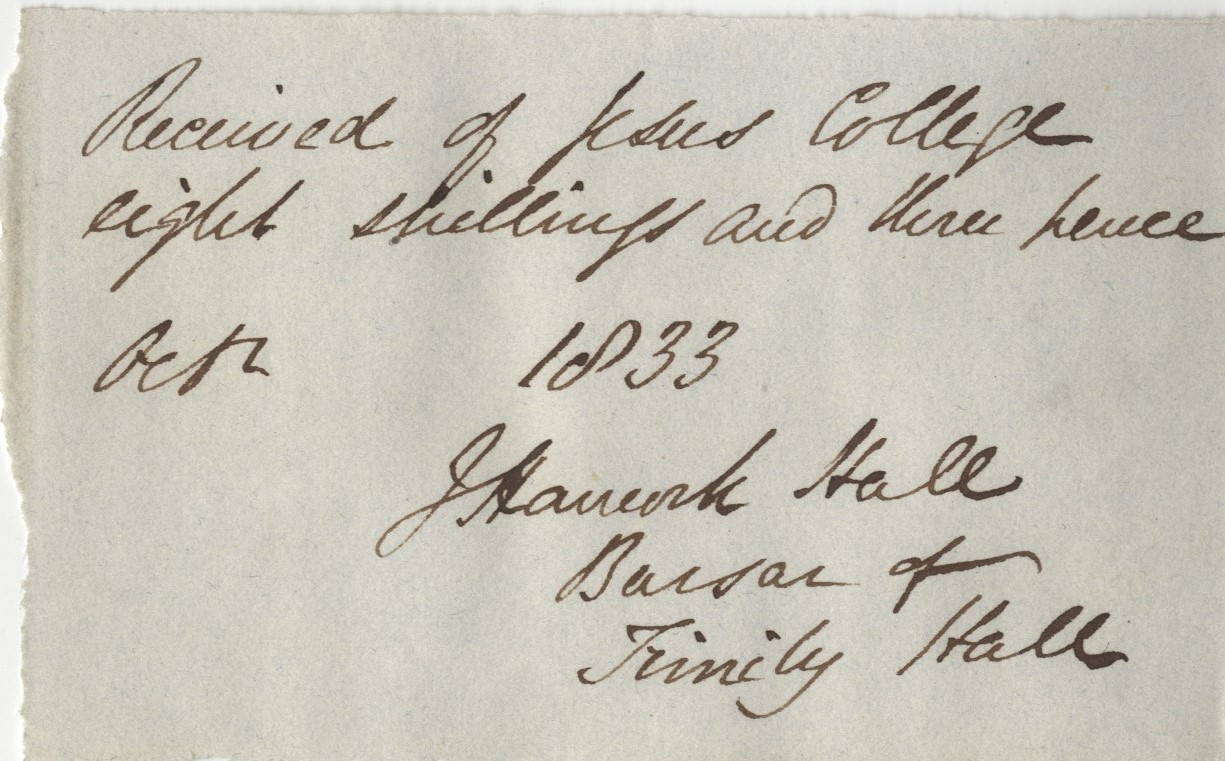 Received of Jesus College
eight shillings and three pence
Octr 1833
J Hancock Hall
Bursar of
Trinity Hall